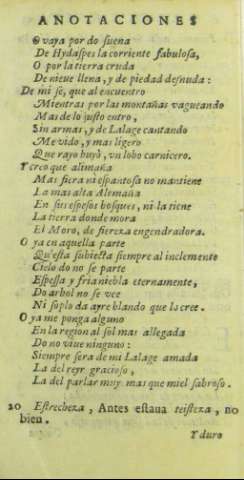 ANOTACIONES
O vaya por do suena
De Hydaspes la corriente fabulosa,
O por la tierra cruda
De nieue llena, y de piedad desnuda:
De mi sè, que al encuentro
Mientras por las montañas vagueando
Mas de lo justo entro,
Sin armas, y de Lalage cantando
Me vido, y mas ligero
Que rayo huyò, vn lobo carnicero.
Y creo que alimaña
Mas fiera ni espantosa no mantiene
La mas alta Alemaña
En sus espesos bosques, ni la tiene
La tierra donde mora
El Moro, de fiereza engendradora.
O ya en aquella parte
Qu'esta subiecta siempre al inclemente
Cielo do no se parte
Espessa y fria niebla eternamente,
Do arbol no se vee
Ni soplo da ayre blando que la cree.
O ya me ponga alguno
En la region al sol mas allegada
Do no viue ninguno:
Siempre sera de mi Lalage amada
La del reyr gracioso,
La del parlar muy mas que miel sabroso.
20 Estrecheza, Antes estaua teisteza, no
bien.
Y duro